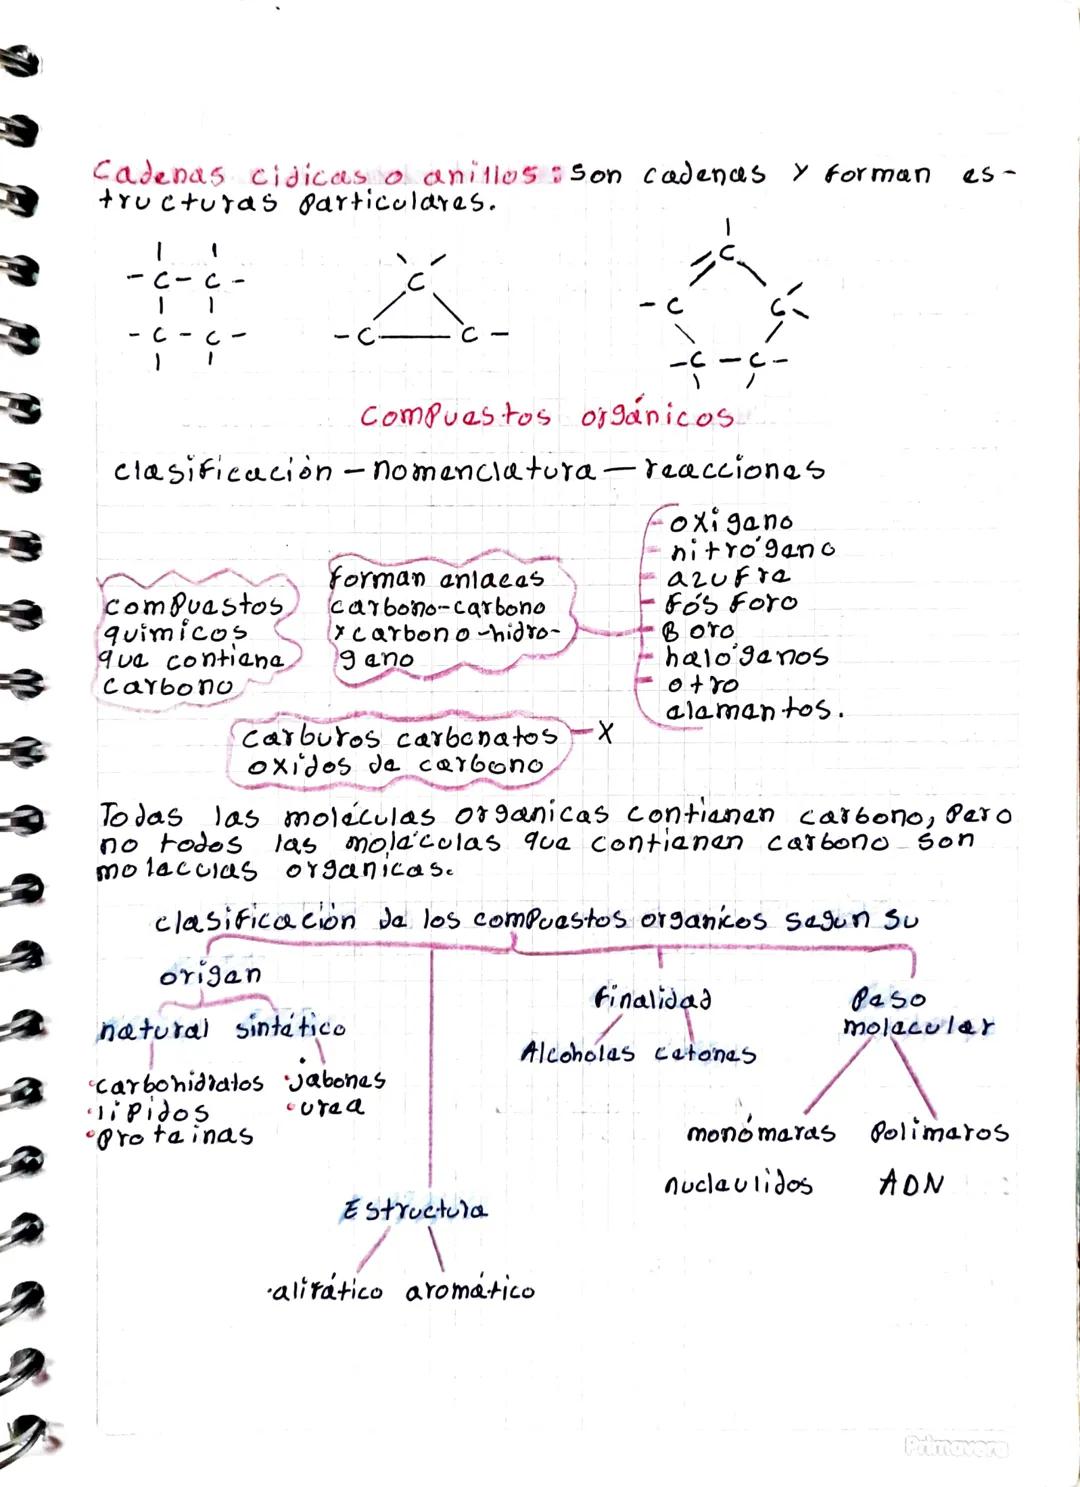 Cadenas ciclicas o anillos: Son cadenas y forman es-
tructuras particulares.
-C-C-
-C-C-
C
-C C-
C
-C C
-C-C-
Compuestos orgánicos
clasificación - nomenclatura - reacciones
compuestos
quimicos
que contiene
carbono
forman enlaces
carbono-carbono
y carbono-hidro-
geno
- oxigeno
- nitrógeno
- azufre
- fósforo
- Boro
- halógenos
- otro
elementos.
carburos carbonatos - X
oxidos de carbono
Todas las moléculas organicas contienen carbono, pero
no todos las moléculas que contienen carbono son
moleculas organicas.
clasificación de los compuestos organicos segun su
origen
natural sintético
•carbohidratos
•lipidos
•proteinas
•jabones
•urea
Estructura
•alifático aromático
finalidad
Alcoholes cetonas
Peso
molecular
monómeros Polimeros
nucleulidos ADN
Primavera